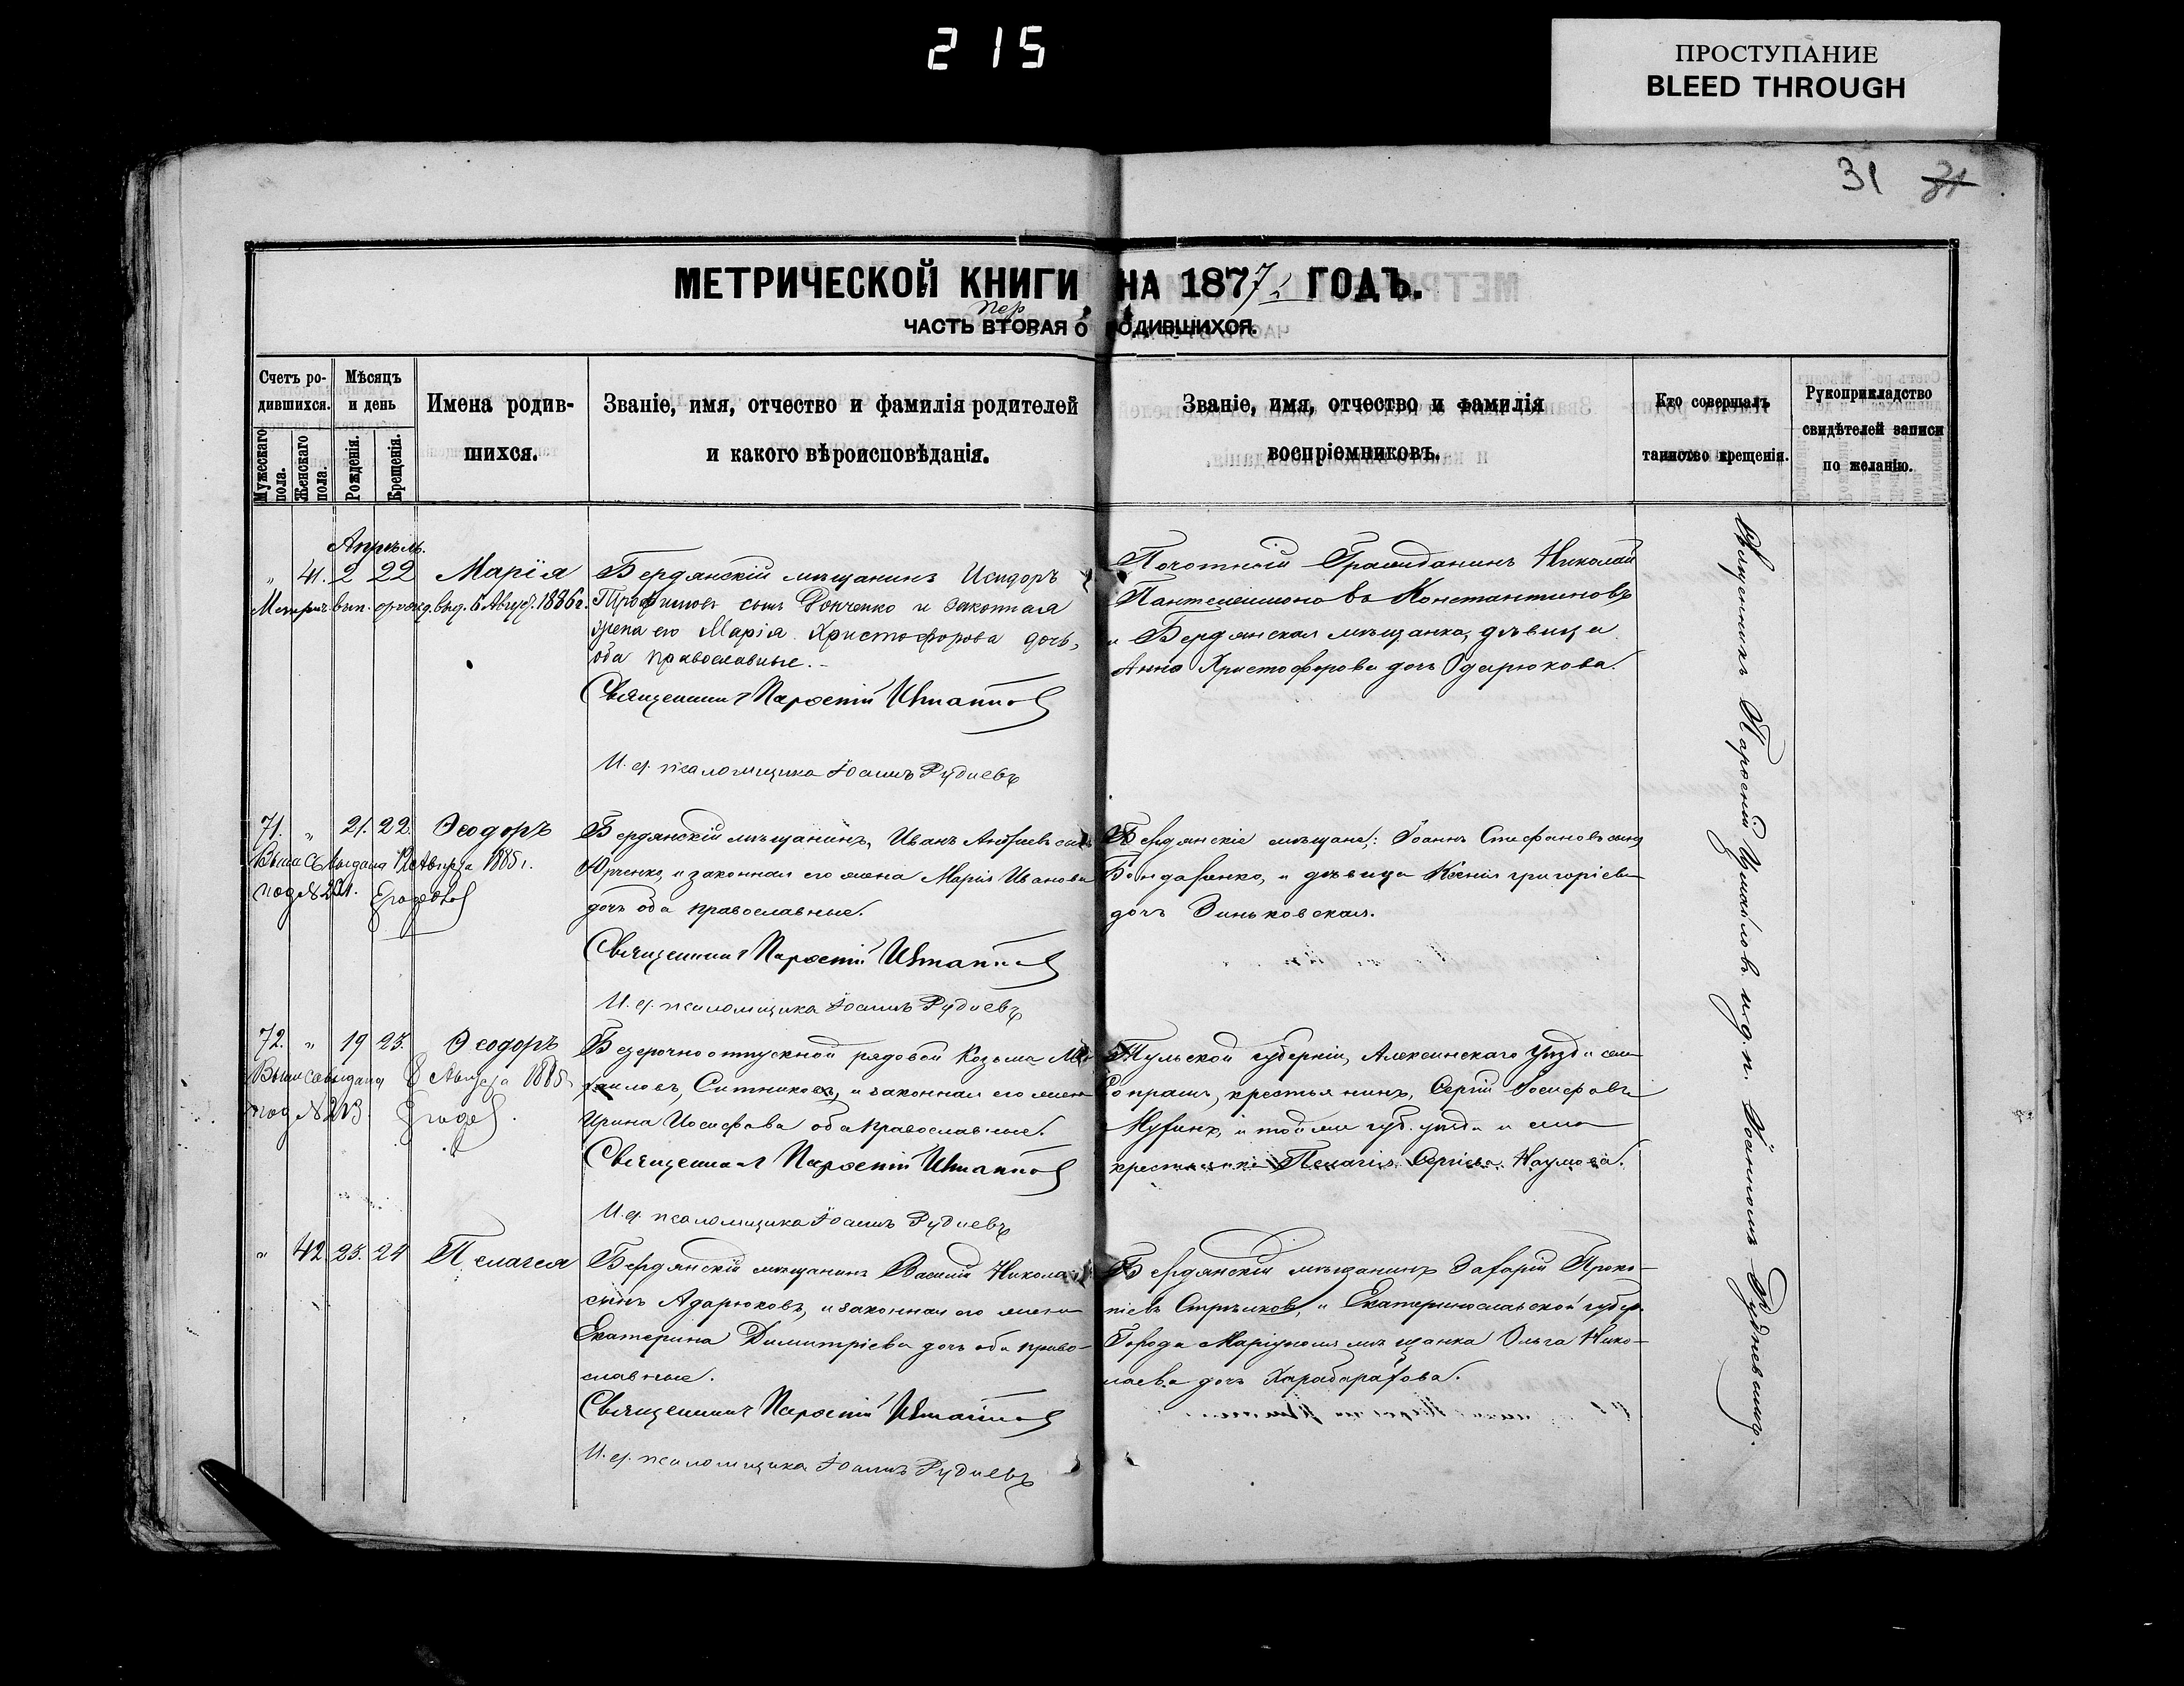 215
ПРОСТУПАНИЕ
BLEED THROUGH
31 31
МЕТРИЧЕСКОЙ КНИГИ НА 1877 ГОДЪ.
пер
ЧАСТЬ ВТОРАЯ О РОДИВШИХСЯ.
Счетъ родившихся.
Мужескаго пола.
Женскаго пола.
Мѣсяцъ и день
Рожденія.
Крещенія.
Имена родившихся.
Званіе, имя, отчество и фамилія родителей
и какого вѣроисповѣданія.
Званіе, имя, отчество и фамилія
воспріемниковъ.
Кто совершалъ
таинство крещенія.
Рукоприкладство
свидѣтелей записи
по желанію.
Апрѣль.
" 41. 2 22 Марія
Метрич. вып. выд. 6 Август. 1886 г.
Бердянскій мѣщанинъ Исидоръ
Трофимовъ сынъ Донченко и законная
жена его Марія Христофорова дочь,
оба православные.
Священникъ
И. д. псаломщика Іоаннъ Рудневъ
Почотный Гражданинъ Николай
Пантелеимоновъ Константиновъ
и Бердянская мѣщанка, дѣвица
Анна Христофорова дочь Одарюкова.
71. " 21. 22. Ѳеодоръ
Выпись выдана 12 Августа 1885 г.
под №
Бердянскій мѣщанинъ, Иванъ Андреевъ сынъ
Юрченко, и законная его жена Марія Иванова
дочь оба православные.
Священникъ
И. д. псаломщика Іоаннъ Рудневъ
Бердянскіе мѣщане: Іоаннъ Стефановъ сынъ
Бондаренко, и дѣвица Ксенія Григоріева
дочь Зиньковская.
72. " 19 23. Ѳеодоръ
Выпись выдана 8 Августа 1885
под № 213
Безсрочноотпускной рядовой Козьма Ми-
хаиловъ, Ситниковъ, и законная его жена
Ирина Иосифова оба православные.
Священникъ
И. д. псаломщика Іоаннъ Рудневъ
Тульской губерніи, Алексинскаго Уѣзда села
крестьянинъ, Сергій Іосифовъ
и той же губ. уѣзда и села
Пелагія Сергіева Наумова.
" 42. 23. 24 Пелагея
Бердянскій мѣщанинъ Василій Николаевъ
сынъ Адарюковъ, и законная его жена
Екатерина Димитріева дочь оба право-
славные.
Священникъ
И. д. псаломщика Іоаннъ Рудневъ
Бердянскій мѣщанинъ Захарій Проко-
піевъ Стрѣлковъ, и Екатеринославской губер.
Города Маріуполя мѣщанка Ольга Нико-
лаева дочь
Священникъ Измаиловъ и. д. п. Іоанномъ Рудневымъ.